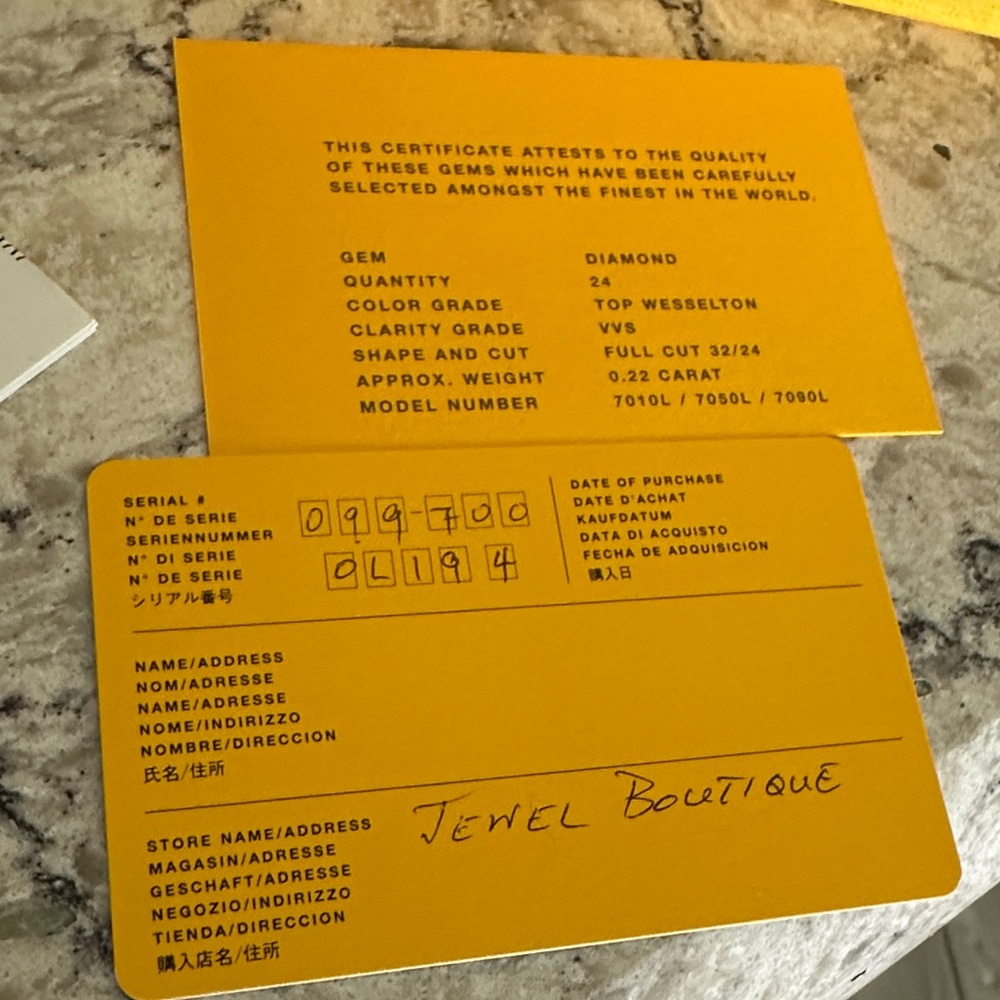 THIS CERTIFICATE ATTESTS TO THE QUALITY
OF THESE GEMS WHICH HAVE BEEN CAREFULLY
SELECTED AMONGST THE FINEST IN THE WORLD.
GEM DIAMOND
QUANTITY 24
COLOR GRADE TOP WESSELTON
CLARITY GRADE VVS
SHAPE AND CUT FULL CUT 32/24
APPROX. WEIGHT 0.22 CARAT
MODEL NUMBER 7010L / 7050L / 7090L
SERIAL #
N° DE SERIE
SERIENNUMMER
N° DI SERIE
N° DE SERIE
シリアル番号
099-700
0L194
DATE OF PURCHASE
DATE D'ACHAT
KAUFDATUM
DATA DI ACQUISTO
FECHA DE ADQUISICION
購入日
NAME/ADDRESS
NOM/ADRESSE
NAME/ADRESSE
NOME/INDIRIZZO
NOMBRE/DIRECCION
氏名/住所
STORE NAME/ADDRESS
MAGASIN/ADRESSE
GESCHAFT/ADRESSE
NEGOZIO/INDIRIZZO
TIENDA/DIRECCION
購入店名/住所
JEWEL BOUTIQUE